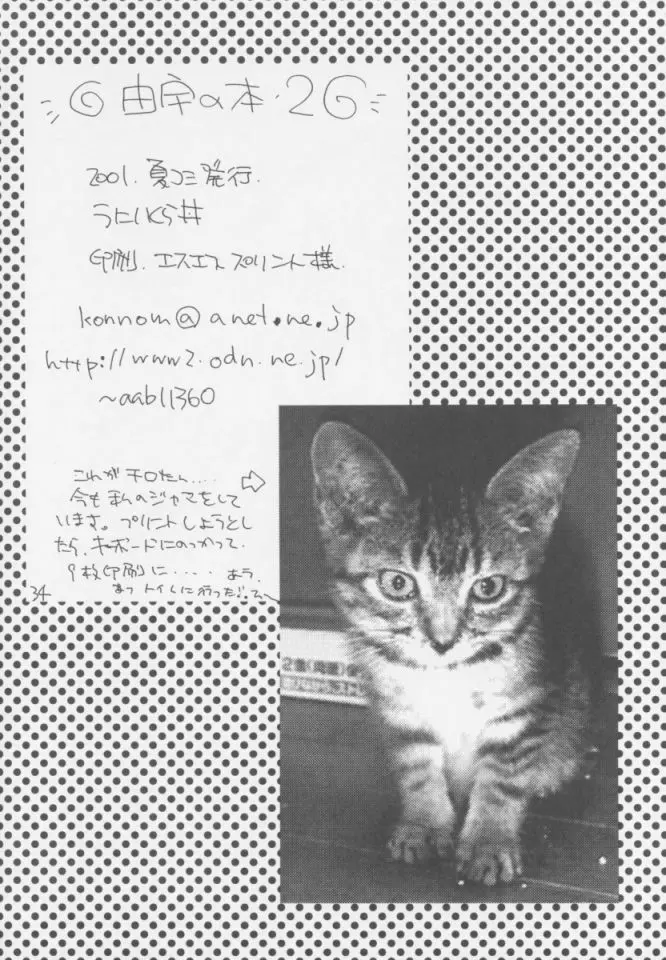 由宇の本・2
2001.夏コミ発行.
うにいくら丼
印刷.エスエスプリント様.
konnom@anet.ne.jp
http://www2.odn.ne.jp/
~aab11360
これがチロたん....
今もまんのジャマをして
います。プリントしようとし
たら、キーボードにのっかって.
9枚印刷に....あう.
あっトイレに行った
34